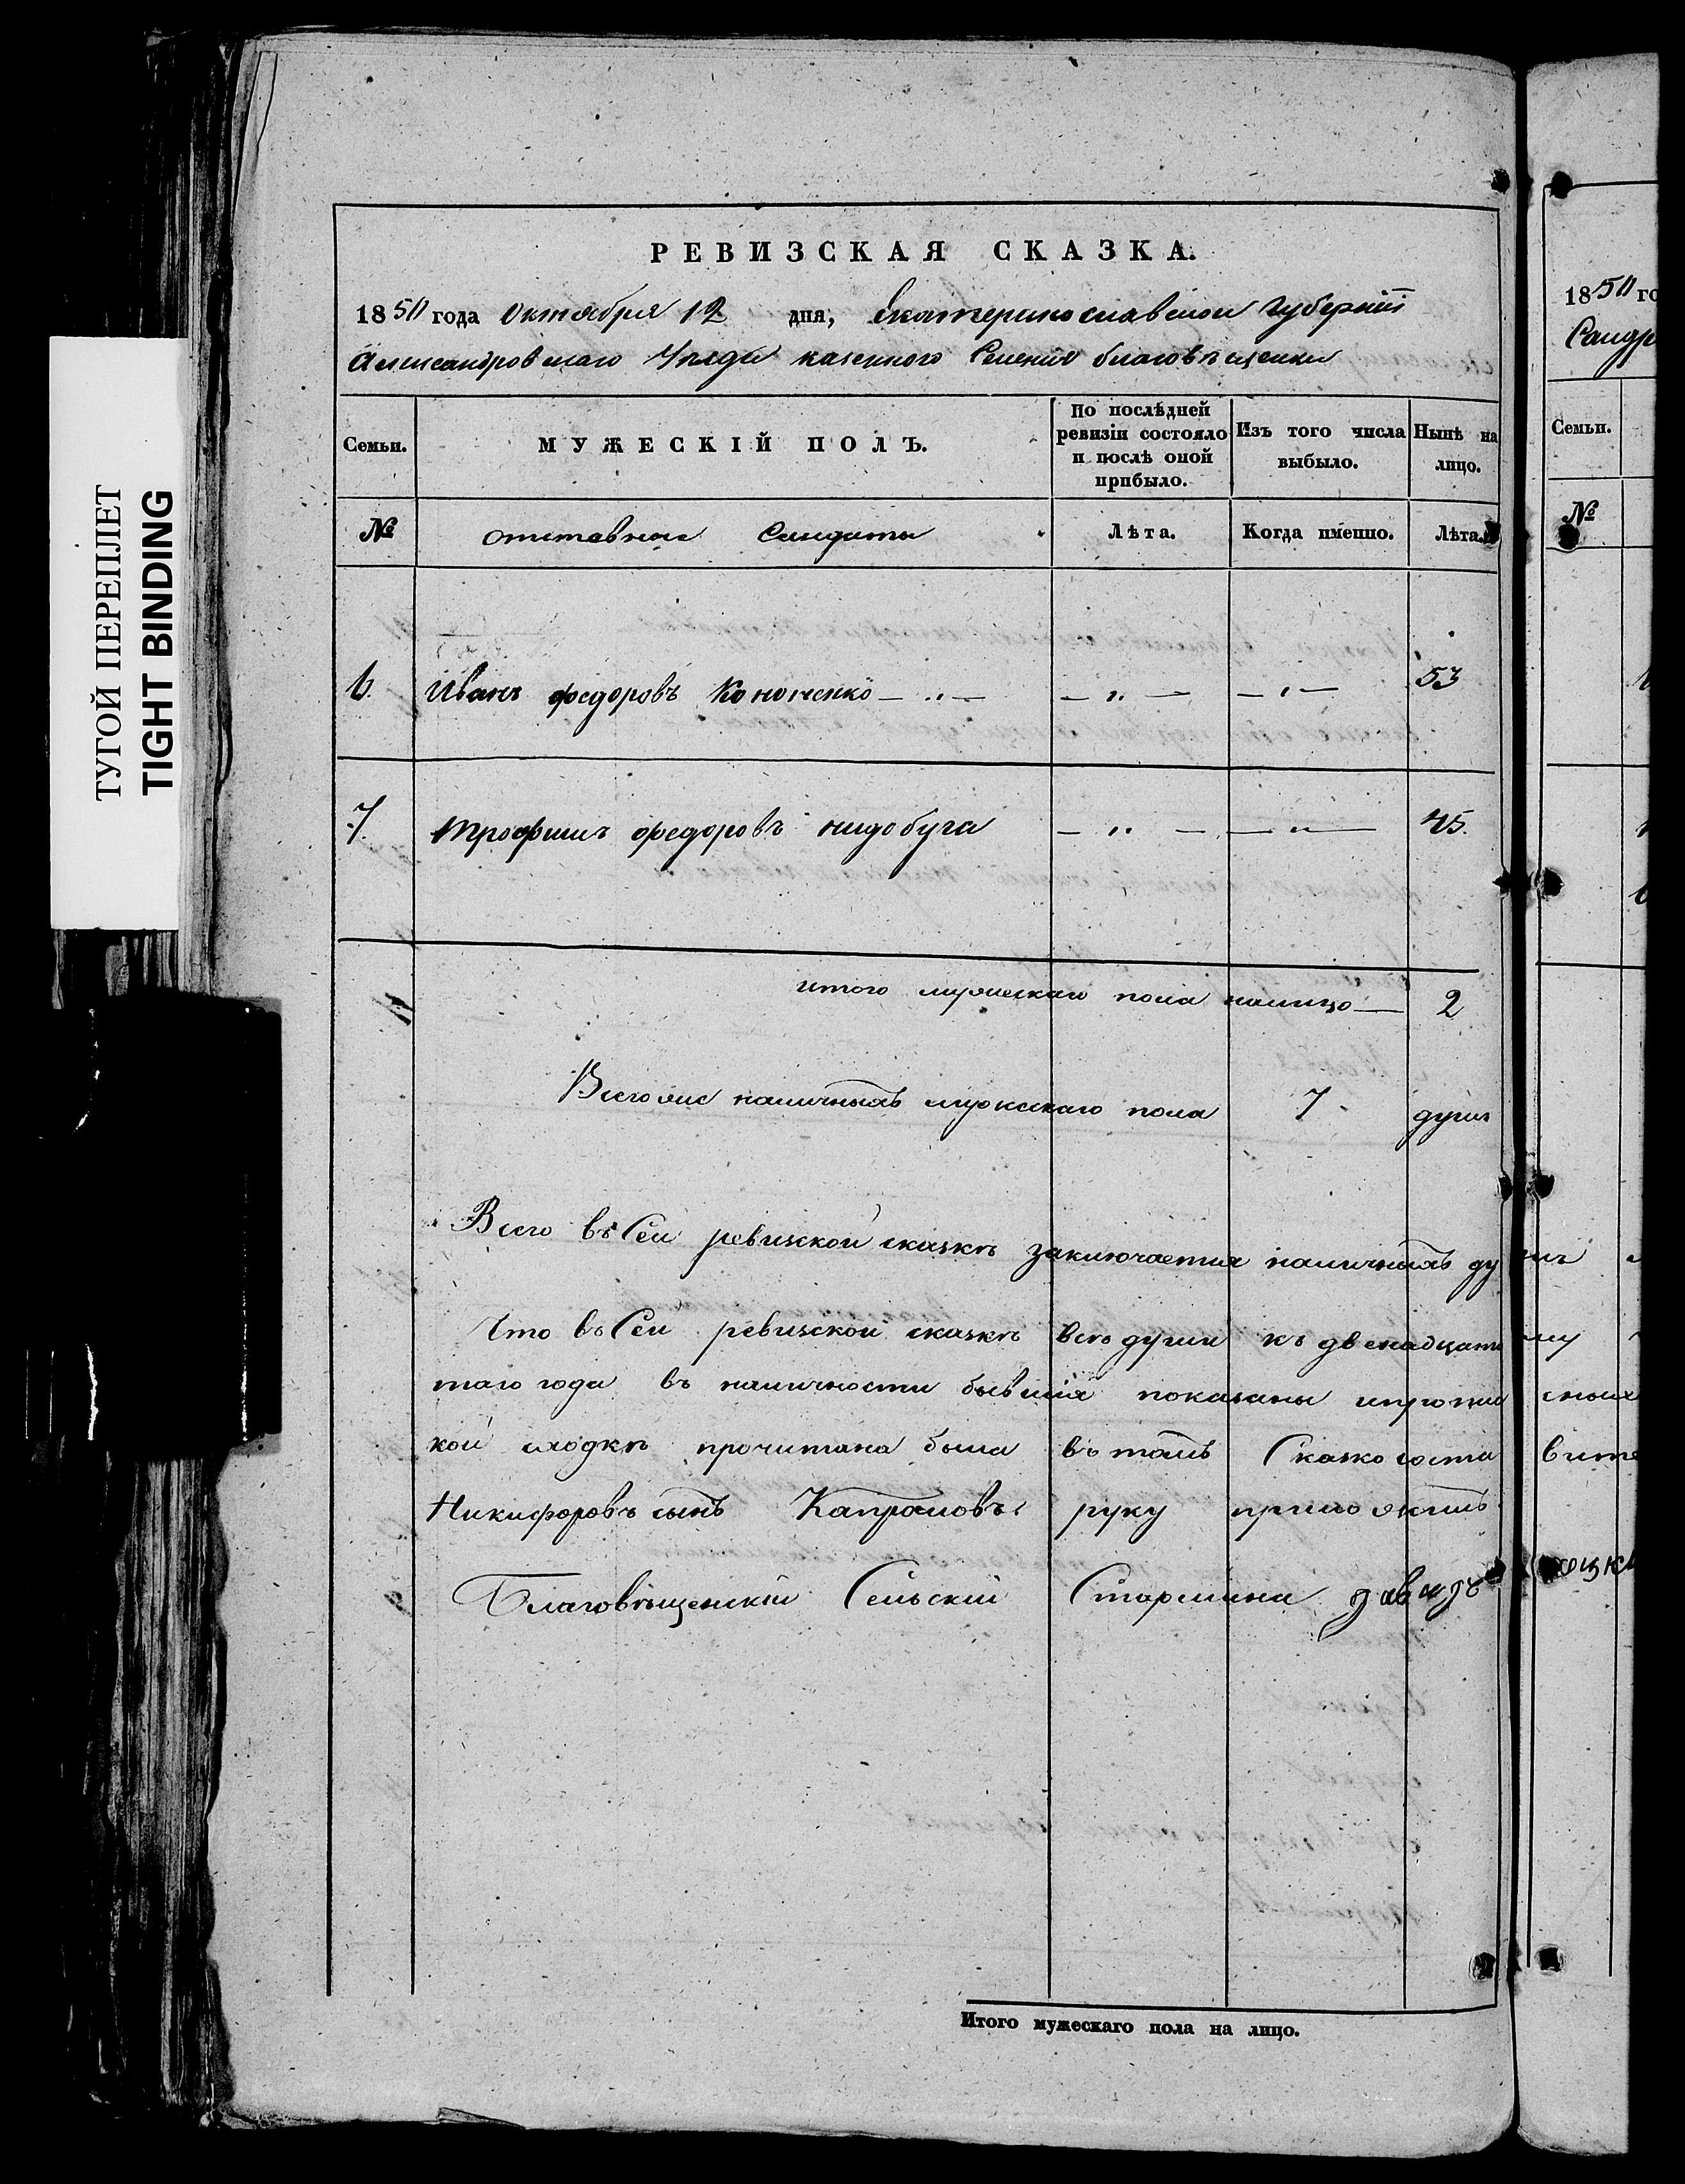 ТУГОЙ ПЕРЕПЛЕТ
TIGHT BINDING
РЕВИЗСКАЯ СКАЗКА.
1850 года Октября 12 дня, Екатеринославской Губернiи
Александровскаго Уѣзда казенного Селенiя благовѣщенки
Семьи.
МУЖЕСКIЙ ПОЛЪ.
По послѣдней ревизiи состояло и послѣ оной прибыло.
Изъ того числа выбыло.
Нынѣ на лицо.
№
отставные Солдаты
Лѣта.
Когда именно.
Лѣта.
6. Иванъ федоровъ Кононенко — „ — — „ — — „ — 53
7. Трофимъ федоровъ нидобуга — „ — — „ — 45.
итого мужескаго пола налицо — 2
Всего же наличныхъ мужескаго пола 7 душъ
Всего въ Сей ревизской сказкѣ заключается наличныхъ ду шъ
Что въ Сей ревизской сказкѣ всѣ души къ двенадцато му
таго года въ наличности бывшiя показаны
кой прочитана была въ томъ Сказко соста вите
Никифоровъ сынъ руку приложилъ
Благовѣщенскiй Сельскiй Старшина давидъ
Итого мужескаго пола на лицо.
1850 го
Семьи.
№